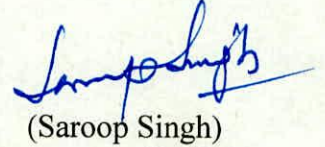 Saroop Singh
(Saroop Singh)